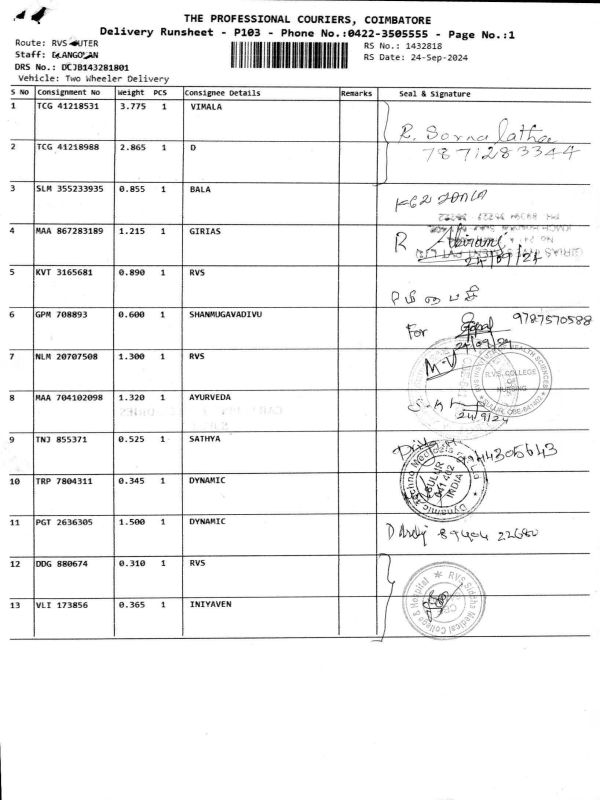 THE PROFESSIONAL COURIERS, COIMBATORE
Delivery Runsheet - P103 - Phone No.:0422-3505555 - Page No.:1
Route: RVS OUTER
RS No.: 1432818
Staff: ELANGOVAN
RS Date: 24-Sep-2024
DRS No.: DCJB143281801
Vehicle: Two Wheeler Delivery
S No Consignment No Weight PCS Consignee Details Remarks Seal & Signature
1 TCG 41218531 3.775 1 VIMALA
R. Sornalatha
2 TCG 41218988 2.865 1 D 7871283344
3 SLM 355233935 0.855 1 BALA
4 MAA 867283189 1.215 1 GIRIAS R
24/09/24
5 KVT 3165681 0.890 1 RVS
6 GPM 708893 0.600 1 SHANMUGAVADIVU For Gopal 9787570588
24/09/24
7 NLM 20707508 1.300 1 RVS M-V
R.V.S. COLLEGE OF NURSING
8 MAA 704102098 1.320 1 AYURVEDA
24/9/24
9 TNJ 855371 0.525 1 SATHYA
9944305643
10 TRP 7804311 0.345 1 DYNAMIC
SULUR 641 402 INDIA
11 PGT 2636305 1.500 1 DYNAMIC
12 DDG 880674 0.310 1 RVS
RVS Siddha Medical College & Hospital
13 VLI 173856 0.365 1 INIYAVEN